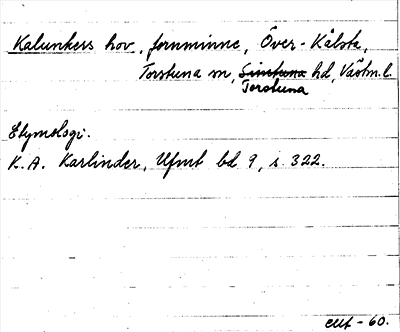 Kalunkers hov, fornminne, Över-Kålsta,
Torstuna sn, Simtuna hd, Västm. l.
Torstuna
Etymologi.
K. A. Karlinder, Ufmt bd 9, s. 322.
-60.